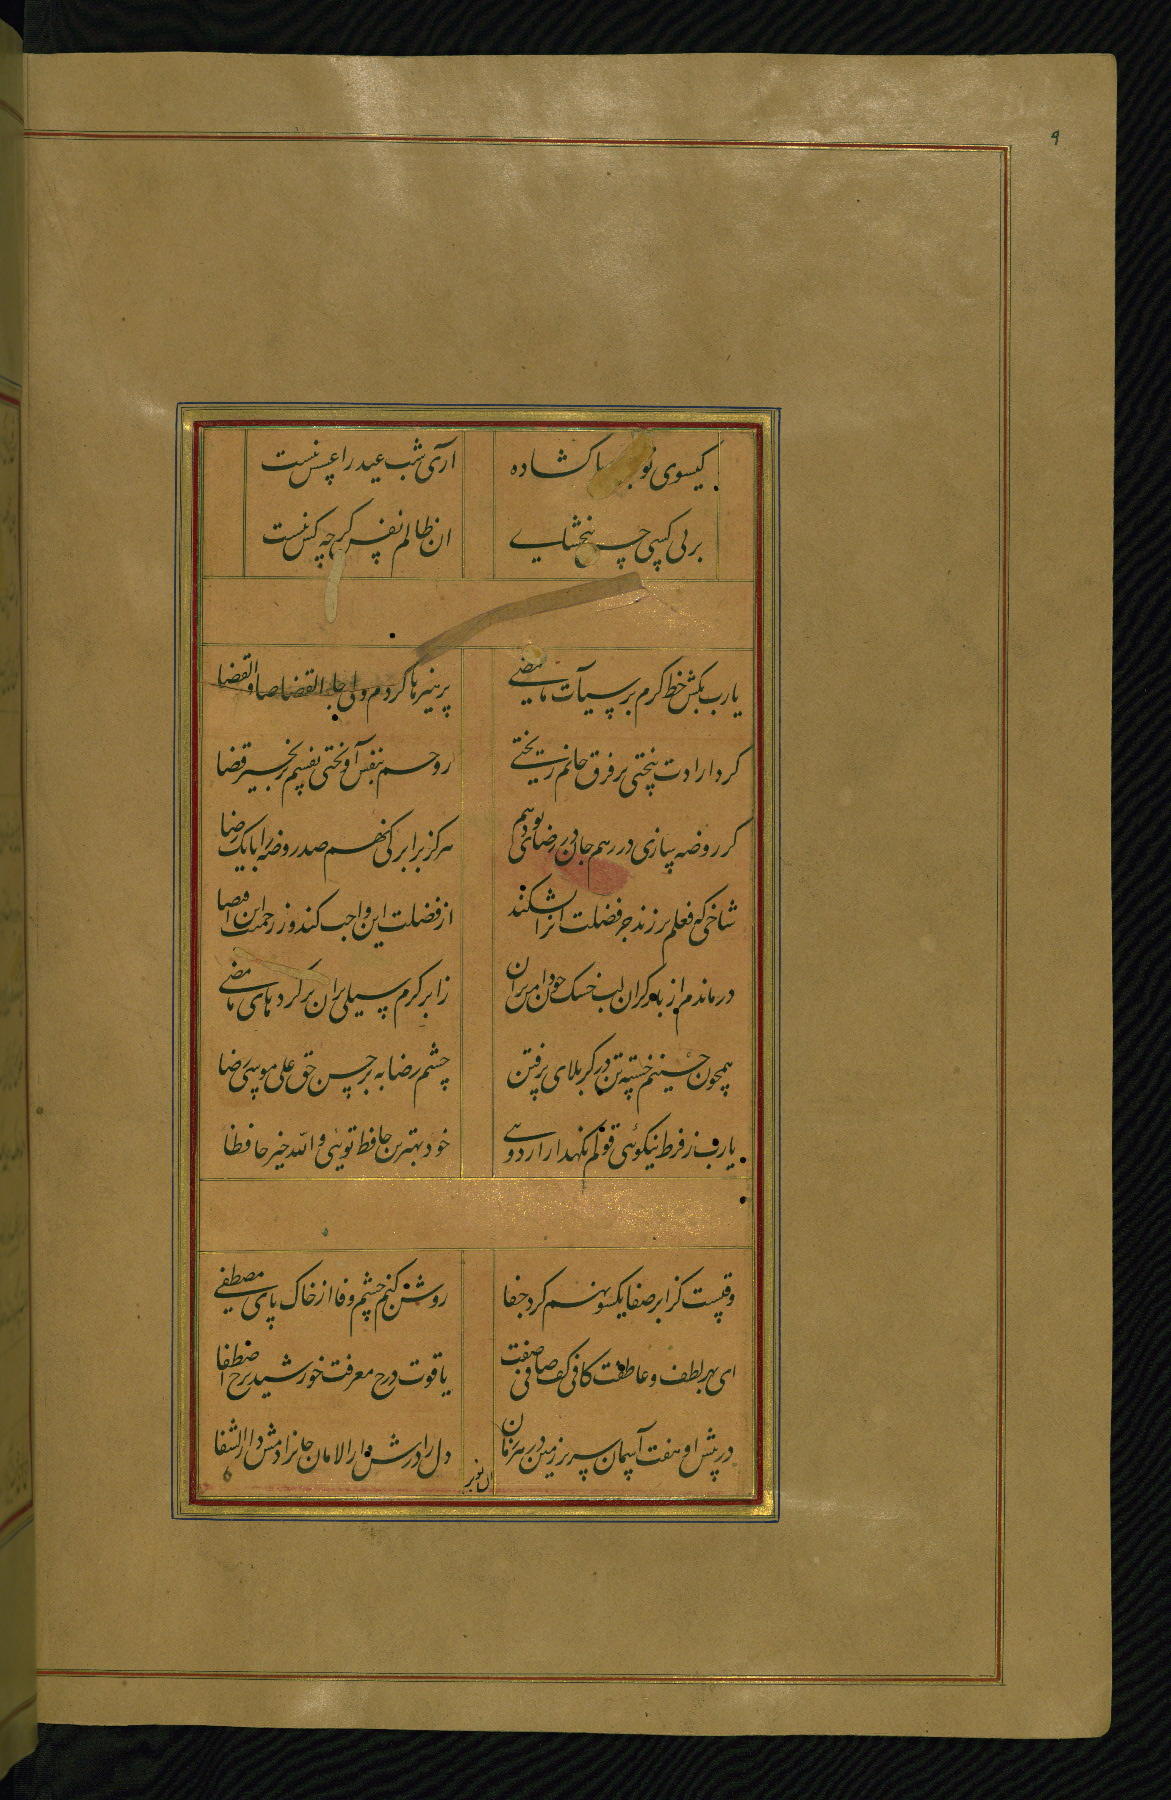 ۹
کیسوی تو کشاده
آری شب عید را عسس نیست
بر بی کسی چه نبخشایی
ان ظالم نفس کر چه کس نیست
یارب بکش خط کرم بر سیآت ما مضی
پرهیز نا کردم ولی جا القضا ضاق الفضا
کرد ارادت پنختی بر فرق جانم ریختی
روحم بنفس آویختی نفسم بزنجیر قضا
کر روضه سازی در رهم جان در رضای تو دهم
هرکز برابر کی نهم صد روضه را با یک رضا
شاخی که فعلم بر زند جز فضلت انرا نشکند
از فضلت این واجب کند وز رحمتت این اقتضا
درماندم از بار کران لب خشک خون از من بران
ز ابر کرم سیلی بران بر کردهای ما مضی
همچون حسینم خسته تن در کربلای پر فتن
چشم رضا به بر حسن حق علی موسی رضا
یارب ز فرط نیکوئی قولم نکهدار از دوئی
خود بهترین حافظ توئی والله خیر حافظا
وقتست کز ابر صفا یکسو نهم کرد جفا
روشن کنم چشم وفا از خاک پای مصطفی
ای بهر لطف و عاطفت کافی کف صافی صفت
یاقوت درج معرفت خورشید برج اصطفا
در پیش او هفت آسمان سر بر زمین در هر زمان
دل را درش دار الامان جانرا دمش دار الشفا
ان نور